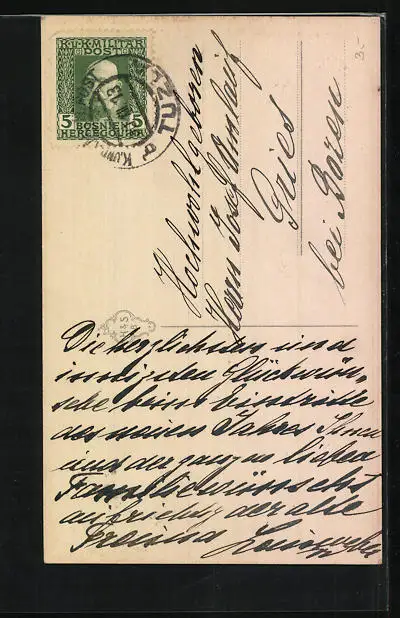 K.u.K. MILITÄR
POST
5 5
BOSNIEN
HERCEGOVINA
Hochwohlgeboren
Herrn Josef
Gries
bei Bozen
Die herzlichsten und
innigsten Glückwün-
sche beim Eintritte
des neuen Jahres Ihnen
und der ganzen lieben
Familie wünscht
aufrichtig der alte
Freund